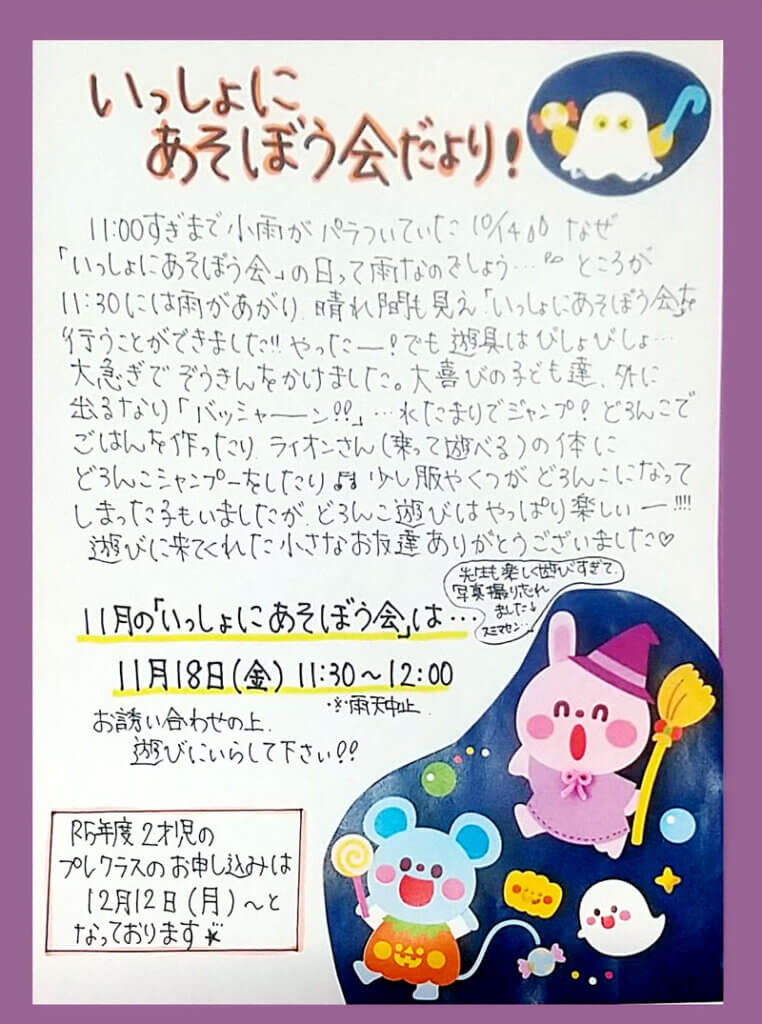 いっしょに
あそぼう会だより!
11:00すぎまで小雨がパラついていた10/14 なぜ
「いっしょにあそぼう会」の日って雨なのでしょう… ところが
11:30には雨があがり、晴れ間も見え「いっしょにあそぼう会」を
行うことができました!! やったー!でも遊具はびしょびしょ…
大急ぎでぞうきんをかけました。大喜びの子ども達、外に
出るなり「バッシャーーン!!」…水たまりでジャンプ! どろんこで
ごはんを作ったり、ライオンさん(乗って遊べる)の体に
どろんこシャンプーをしたり♪ 少し服やくつがどろんこになって
しまった子もいましたが、どろんこ遊びはやっぱり楽しいー!!!!
遊びに来てくれた小さなお友達ありがとうございました♡
先生も楽しく遊びすぎて、
写真撮り忘れ
ました
スミマセン…
11月の「いっしょにあそぼう会」は…
11月18日(金) 11:30~12:00
※雨天中止
お誘い合わせの上、
遊びにいらして下さい!!
R5年度 2才児の
プレクラスのお申し込みは
12月12日(月)~と
なっております★